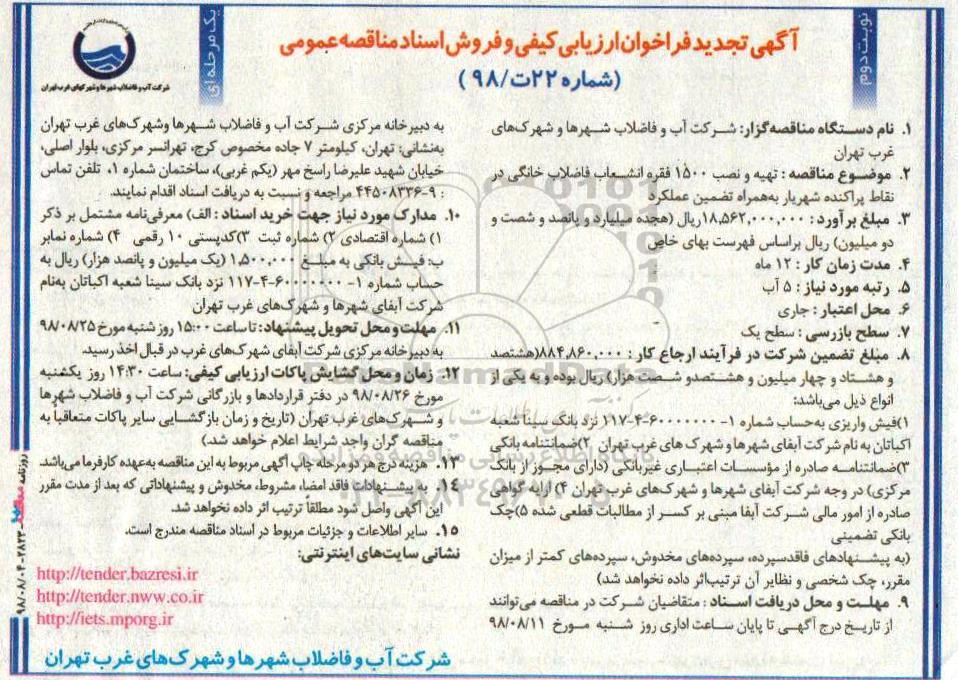 نوبت دوم
آگهی تجدید فراخوان ارزیابی کیفی و فروش اسناد مناقصه عمومی
(شماره ۲۲ت/۹۸)
یک مرحله ای
شرکت آب و فاضلاب شهرها و شهرکهای غرب تهران
۱. نام دستگاه مناقصه‌گزار: شرکت آب و فاضلاب شهرها و شهرک‌های
غرب تهران
۲. موضوع مناقصه : تهیه و نصب ۱۵۰۰ فقره انشعاب فاضلاب خانگی در
نقاط پراکنده شهریار به‌همراه تضمین عملکرد
۳. مبلغ برآورد : ۱۸,۵۶۲,۰۰۰,۰۰۰ریال (هجده میلیارد و پانصد و شصت و
دو میلیون) ریال براساس فهرست بهای خاص
۴. مدت زمان کار : ۱۲ ماه
۵. رتبه مورد نیاز : ۵ آب
۶. محل اعتبار : جاری
۷. سطح بازرسی : سطح یک
۸. مبلغ تضمین شرکت در فرآیند ارجاع کار : ۸۸۴,۸۶۰,۰۰۰(هشتصد
و هشتاد و چهار میلیون و هشتصدو شصت هزار) ریال بوده و به یکی از
انواع ذیل می‌باشد:
۱)فیش واریزی به‌حساب شماره ۱-۱۱۷-۴-۶۰۰۰۰۰۰۰ نزد بانک سینا شعبه
اکباتان به نام شرکت آبفای شهرها و شهرک های غرب تهران ۲)ضمانتنامه بانکی
۳)ضمانتنامه صادره از مؤسسات اعتباری غیربانکی (دارای مجوز از بانک
مرکزی) در وجه شرکت آبفای شهرها و شهرک‌های غرب تهران ۴) ارایه گواهی
صادره از امور مالی شرکت آبفا مبنی بر کسر از مطالبات قطعی شده ۵)چک
بانکی تضمینی
(به پیشنهادهای فاقدسپرده، سپرده‌های مخدوش، سپرده‌های کمتر از میزان
مقرر، چک شخصی و نظایر آن ترتیب‌اثر داده نخواهد شد)
۹. مهلت و محل دریافت اسناد : متقاضیان شرکت در مناقصه می‌توانند
از تاریخ درج آگهی تا پایان ساعت اداری روز شنبه مورخ ۹۸/۰۸/۱۱
به دبیرخانه مرکزی شرکت آب و فاضلاب شهرها وشهرک‌های غرب تهران
به‌نشانی: تهران، کیلومتر ۷ جاده مخصوص کرج، تهرانسر مرکزی، بلوار اصلی،
خیابان شهید علیرضا راسخ مهر (یکم غربی)، ساختمان شماره ۱، تلفن تماس
: ۹-۴۴۵۰۸۳۳۶ مراجعه و نسبت به دریافت اسناد اقدام نمایند.
۱۰. مدارک مورد نیاز جهت خرید اسناد : الف) معرفی‌نامه مشتمل بر ذکر
۱) شماره اقتصادی ۲) شماره ثبت ۳)کدپستی ۱۰ رقمی ۴) شماره نمابر
ب: فیش بانکی به مبلغ ۱,۵۰۰,۰۰۰ (یک میلیون و پانصد هزار) ریال به
حساب شماره ۱-۱۱۷-۴-۶۰۰۰۰۰۰۰ نزد بانک سینا شعبه اکباتان به‌نام
شرکت آبفای شهرها و شهرک‌های غرب تهران
۱۱. مهلت و محل تحویل پیشنهاد: تا ساعت ۱۵:۰۰ روز شنبه مورخ ۹۸/۰۸/۲۵
به دبیرخانه مرکزی شرکت آبفای شهرک‌های غرب در قبال اخذ رسید.
۱۲. زمان و محل گشایش پاکات ارزیابی کیفی: ساعت ۱۴:۳۰ روز یکشنبه
مورخ ۹۸/۰۸/۲۶ در دفتر قراردادها و بازرگانی شرکت آب و فاضلاب شهرها
و شهرک‌های غرب تهران (تاریخ و زمان بازگشایی سایر پاکات متعاقباً به
مناقصه گران واجد شرایط اعلام خواهد شد.)
۱۳. هزینه درج هر دو مرحله چاپ آگهی مربوط به این مناقصه به‌عهده کارفرما می‌باشد.
۱۴. به پیشنهادات فاقد امضاء، مشروط، مخدوش و پیشنهاداتی که بعد از مدت مقرر
این آگهی واصل شود مطلقاً ترتیب اثر داده نخواهد شد.
۱۵. سایر اطلاعات و جزئیات مربوط در اسناد مناقصه مندرج است.
نشانی سایت‌های اینترنتی:
http://tender.bazresi.ir
http://tender.nww.co.ir
http://iets.mporg.ir
شرکت آب و فاضلاب شهرها و شهرک‌های غرب تهران